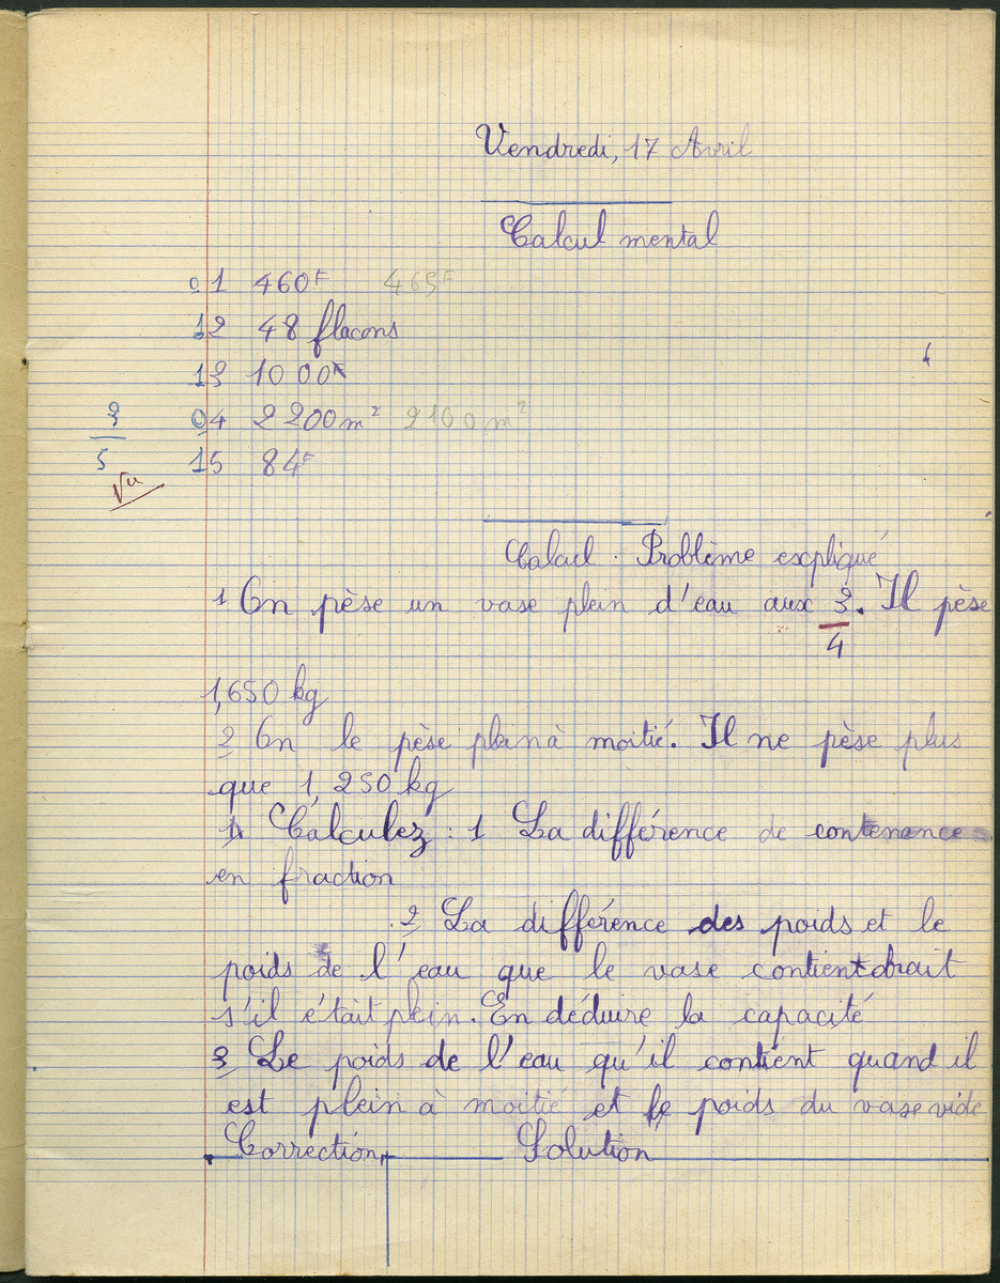 Vendredi, 17 Avril
Calcul mental
0 1 460F 465F
1 2 48 flacons
1 3 1000F
3/5 0 4 2200m² 2100m²
1 5 84F
Vu
Calcul. Problème expliqué
1 On pèse un vase plein d'eau aux 3/4. Il pèse
1,650 kg
2 On le pèse plein à moitié. Il ne pèse plus
que 1,250 kg
Calculez : 1 La différence de contenance
en fraction
2 La différence des poids et le
poids de l'eau que le vase contientdrait
s'il était plein. En déduire la capacité
3 Le poids de l'eau qu'il contient quand il
est plein à moitié et le poids du vase vide
Correction Solution